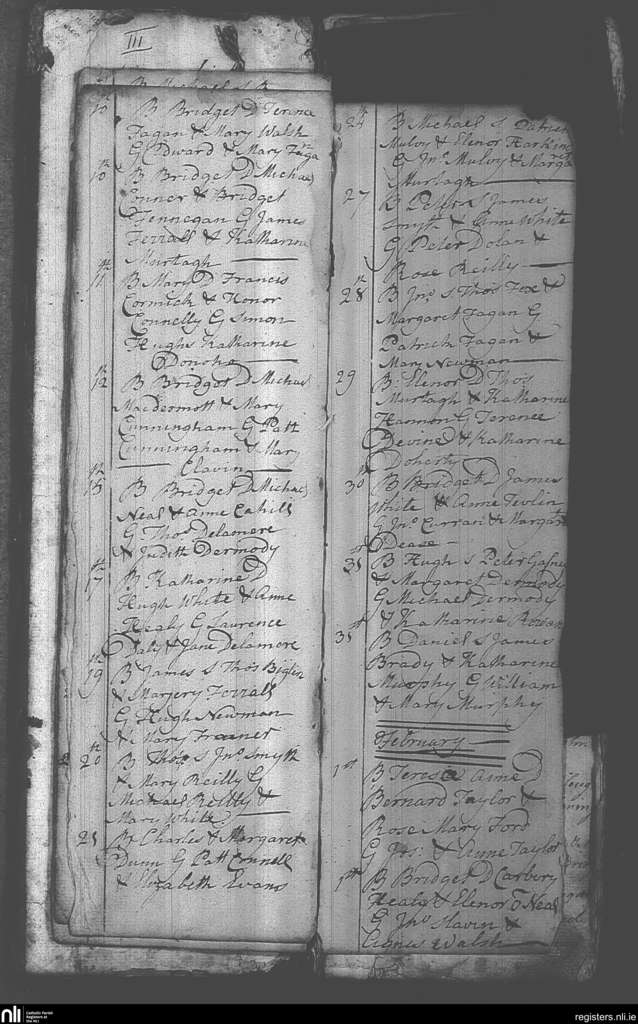 III
B Michael S
10 B Bridget D Terence
Fagan & Mary Walsh
G Edward & Mary Faga
10th B Bridget D Michael
Conner & Bridget
Fennegan G James
Ferrall & Katharine
Murtagh
11th B Mary D Francis
Cormick & Honor
Connelly G Simon
Hughs Katharine
Donoho
12th B Bridget D Michael
Macdermott & Mary
Cunningham G Patt
Cunningham & Mary
Clavin
15th B Bridget D Michael
Neal & Anne Cahill
G Thos Delamere
& Judith Dermody
17th B Katharine D
Hugh White & Anne
Healy G Laurence
Daly & Jane Delamere
19th B James S Thos Biglin
& Marjery Ferrall
G Hugh Newman
& Mary Freaner
20th B Thos S Jno Smyth
& Mary Reilly G
Michael Reilly &
Mary White
21 B Charles & Margaret
Dunn G Patt Connell
& Elizabeth Evans
24th B Michael S Patrick
Mulvy & Elenor Harkin
G Jno Mulvy & Marga
Murtagh
27 B Peter S James
Smyth & Anne White
G Peter Dolan &
Rose Reilly
28th B Jno S Thos Fox &
Margaret Fagan G
Patrick Fagan &
Mary Newman
29 B Elenor D Thos
Murtagh & Katharine
Hannon G Terence
Devine & Katharine
Doherty
30th B Bridget D James
White & Anne Tevlin
G Jno Curran & Margaret
Dease
31st B Hugh S Peter Gafney
& Margaret Dermody
G Michael Dermody
& Katharine
31st B Daniel S James
Brady & Katharine
Murphy G William
& Mary Murphy
February
1st B Teresa Anne D
Bernard Taylor &
Rose Mary Ford
G Jas: & Anne Taylor
1st B Bridget D Carbery
Healy & Elenor O Neal
G Jno Slavin &
Agnes Walsh
nli Catholic Parish Registers at the NLI
registers.nli.ie